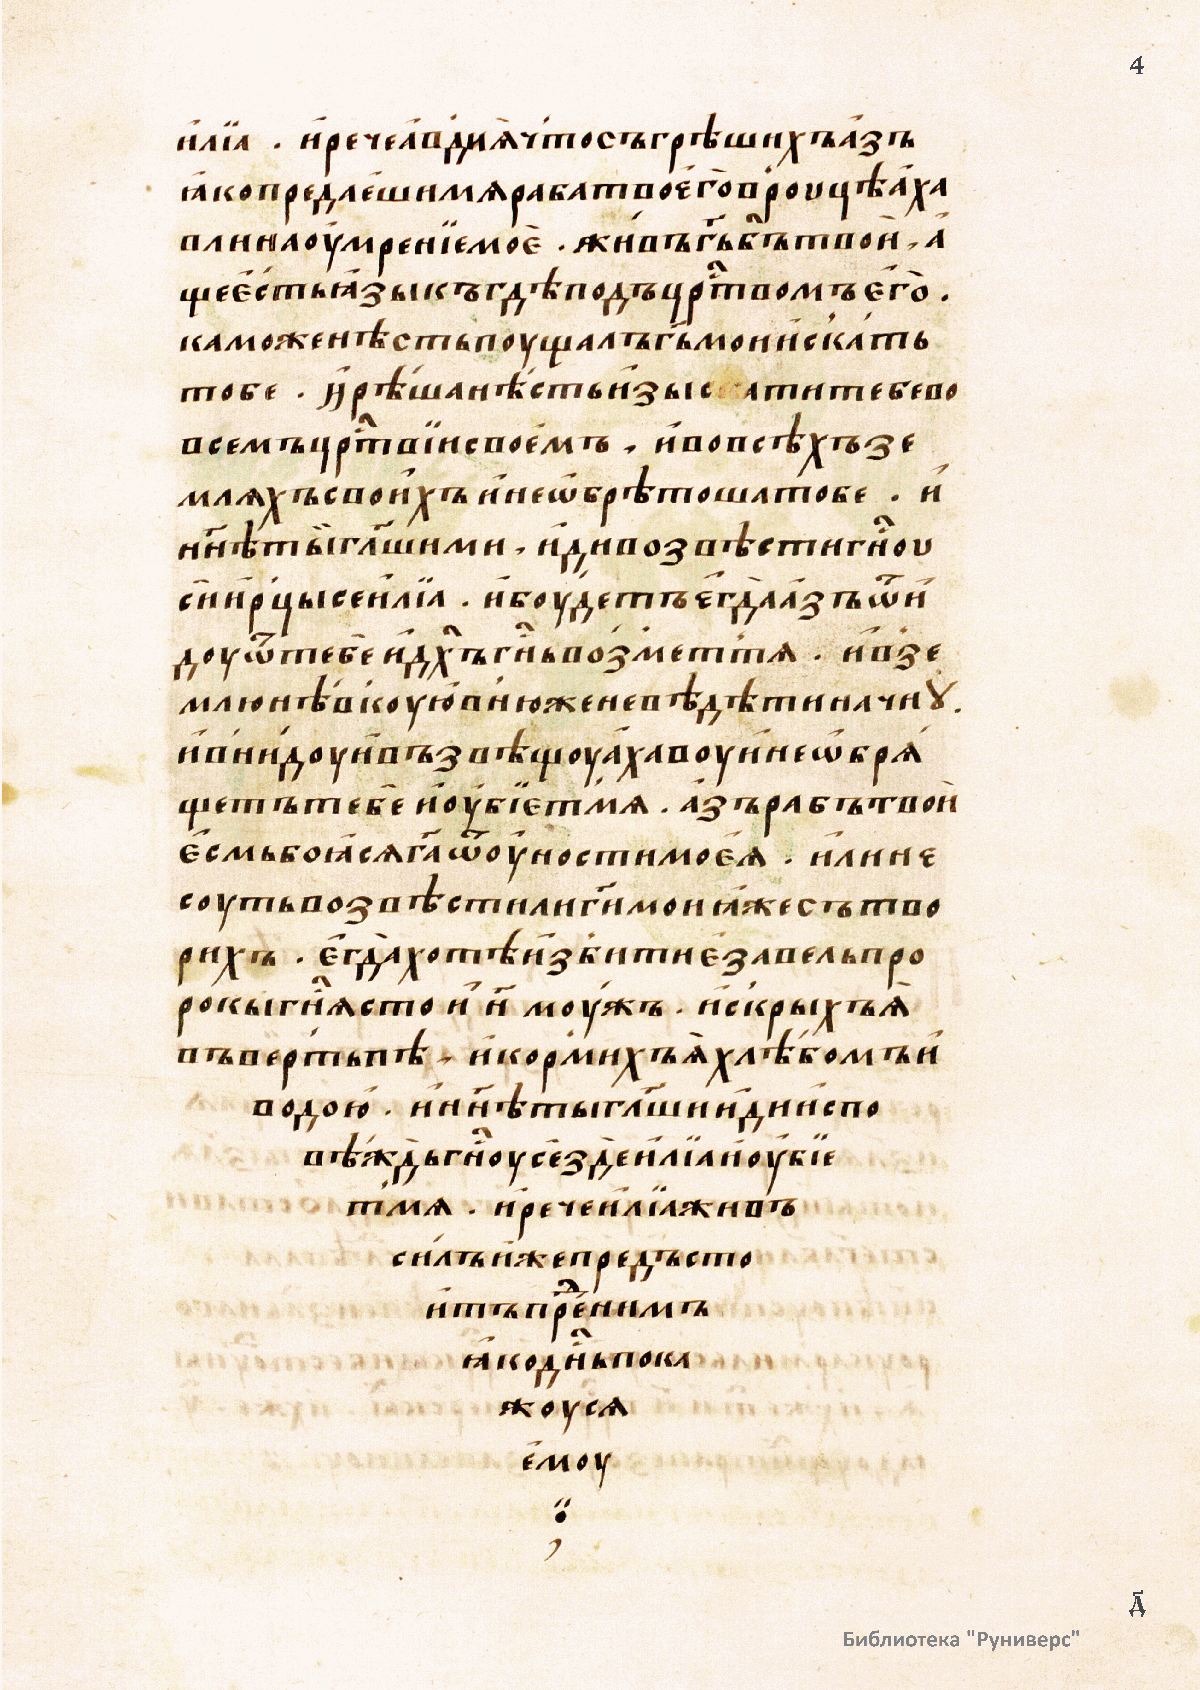 4
и҆лїа . и҆речеа҆вдиꙗ҆что съгрѣшихъ а҆зъ
ꙗ҆ко предае҆ши мѧ раба твое҆го̀ в роуцѣ а҆ха
вли на оу҆мренїе мое҆ . живъ гь҃ бг҃ъ твои҆ , а҆
ще е҆сть ꙗ҆зыкъ гдѣ подъ црⷭ҇твомъ е҆го̀ .
каможе нѣсть поущалъ гь҃ мои и҆скать
тобе . и҆ рѣша нѣсть и҆зыскати тебе во
всемъ црⷭ҇твїи своемъ . и҆ во всѣхъ зе
млѧхъ свои҆хъ и҆ не ѡ҆брѣтоша тобе . и҆
нн҃ѣ ты̀ гл҃ши ми , и҆ди возвѣсти гⷭ҇ноу
си҆ и҆ рцы се и҆лїа . и҆ боу҆детъ е҆гда̀ а҆зъ ѿи҆
доу ѿ тебе и҆ дх҃ъ гⷭ҇нь возметь тѧ . и҆ в зе
млю нѣвкоую҆ в нюже не вѣдѣти начнꙋ .
и҆ внидоу и҆ възвѣщоу а҆хавоу и҆ не ѡ҆брѧ
щетъ тебе и҆ оу҆бїе҆т мѧ . а҆зъ рабъ твои҆
е҆смь боꙗ҆сѧ га҃ ѿ оу҆ности мое҆ѧ . и҆ли не
соуть возвѣстили ги҃ мои ꙗ҆же сътво
рихъ . е҆гда̀ хотѣ и҆збити е҆завель про
рокы гⷭ҇нѧ сто и҆ н҃ моу҆жъ . и҆ скрыхъ ꙗ҆̀
въ вертьпѣ , и҆ кормихъ ꙗ҆̀ хлѣбомъ и҆
водою҆ . и҆ нн҃ѣ ты гл҃ши и҆ди и҆спо
вѣждь гⷭ҇ноу се здѐ и҆лїа и҆ оу҆бїе
т мѧ . и҆ рече и҆лїа живъ
силъ и҆же предъсто
и҆тъ прⷣе нимъ
ꙗ҆ко дн҃ь пока
жоусѧ
е҆моу
д҃
Библиотека "Руниверс"